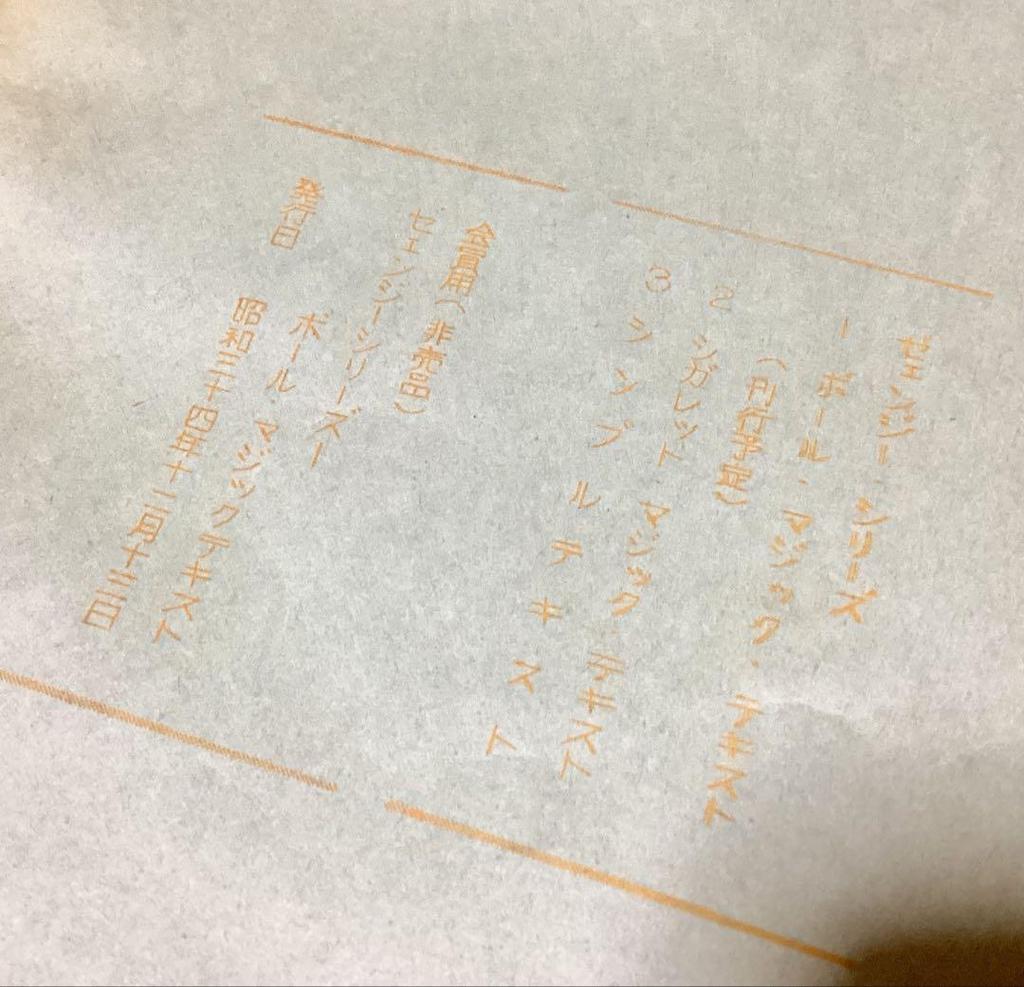 ゼェンジー・シリーズ
1 ボール・マジック・テキスト
(刊行予定)
2 シガレット マジック・テキスト
3 シンプルテキスト
会員用(非売品)
セェンジーシリーズ1
ボール マジックテキスト
発行日 昭和三十四年十二月十三日